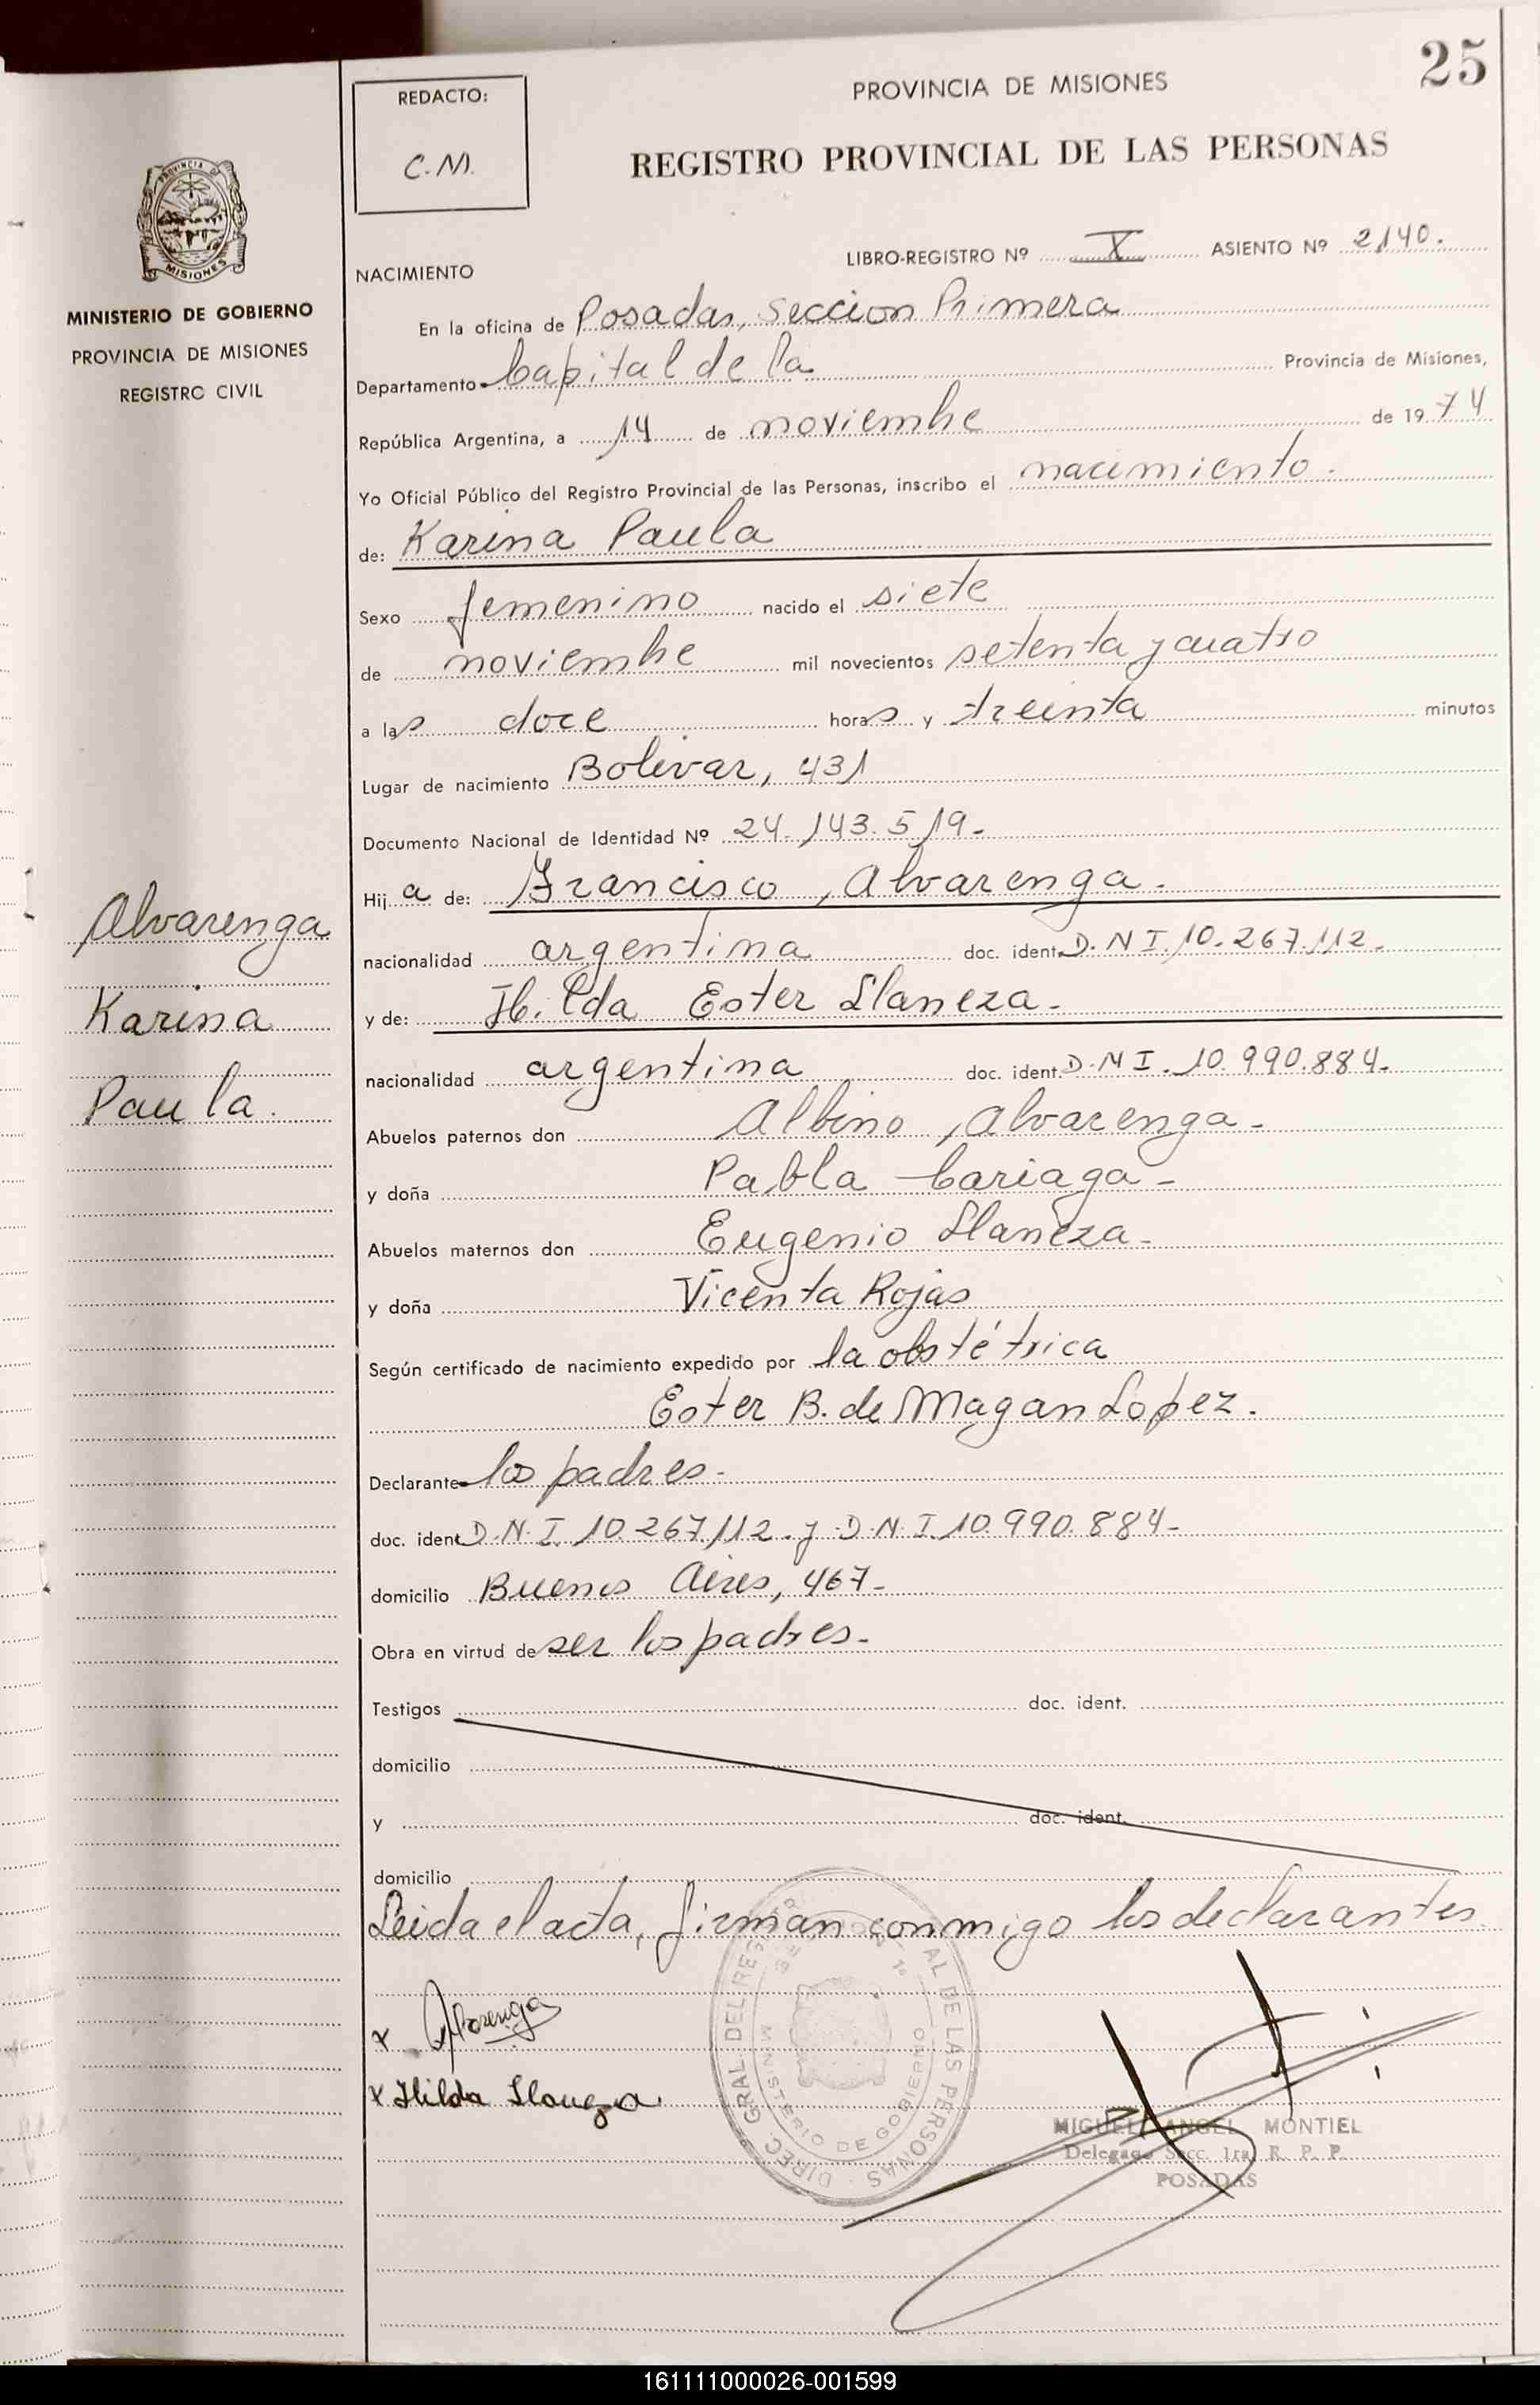 25
REDACTO:
C.M.
PROVINCIA DE MISIONES
REGISTRO PROVINCIAL DE LAS PERSONAS
PROVINCIA DE
MISIONES
MINISTERIO DE GOBIERNO
PROVINCIA DE MISIONES
REGISTRO CIVIL
LIBRO-REGISTRO Nº X ASIENTO Nº 2140.
NACIMIENTO
En la oficina de Posadas, Seccion Primera
Departamento Capital de la Provincia de Misiones,
República Argentina, a 14 de noviembre de 1974
Yo Oficial Público del Registro Provincial de las Personas, inscribo el nacimiento.
de: Karina Paula
Sexo femenino nacido el siete
de noviembre mil novecientos setenta y cuatro
a las doce horas y treinta minutos
Lugar de nacimiento Bolivar, 431
Documento Nacional de Identidad Nº 24.143.519.
Hija de: Francisco, Alvarenga.
nacionalidad argentina doc. ident. D.N I. 10.267.112.
y de: Hilda Ester Llaneza.
nacionalidad argentina doc. ident. D.N I. 10.990.884.
Abuelos paternos don Albino, Alvarenga.
y doña Pabla Cariaga.
Abuelos maternos don Eugenio Llaneza.
y doña Vicenta Rojas
Según certificado de nacimiento expedido por la obstétrica
Ester B. de Magan Lopez.
Declarante los padres.
doc. ident D.N.I. 10.267.112. y D.N.I. 10.990.884.
domicilio Buenos Aires, 467.
Obra en virtud de ser los padres.
Testigos doc. ident.
domicilio
y doc. ident.
domicilio
Leida el acta, firman conmigo los declarantes
Alvarenga
Karina
Paula.
x Alvarenga
x Hilda Llaneza
DIREC. GRAL. DEL REG. AL DE LAS PERSONAS
MINISTERIO DE GOBIERNO
MIGUEL ANGEL MONTIEL
Delegado Secc. 1ra. R. P. P.
POSADAS
161111000026-001599